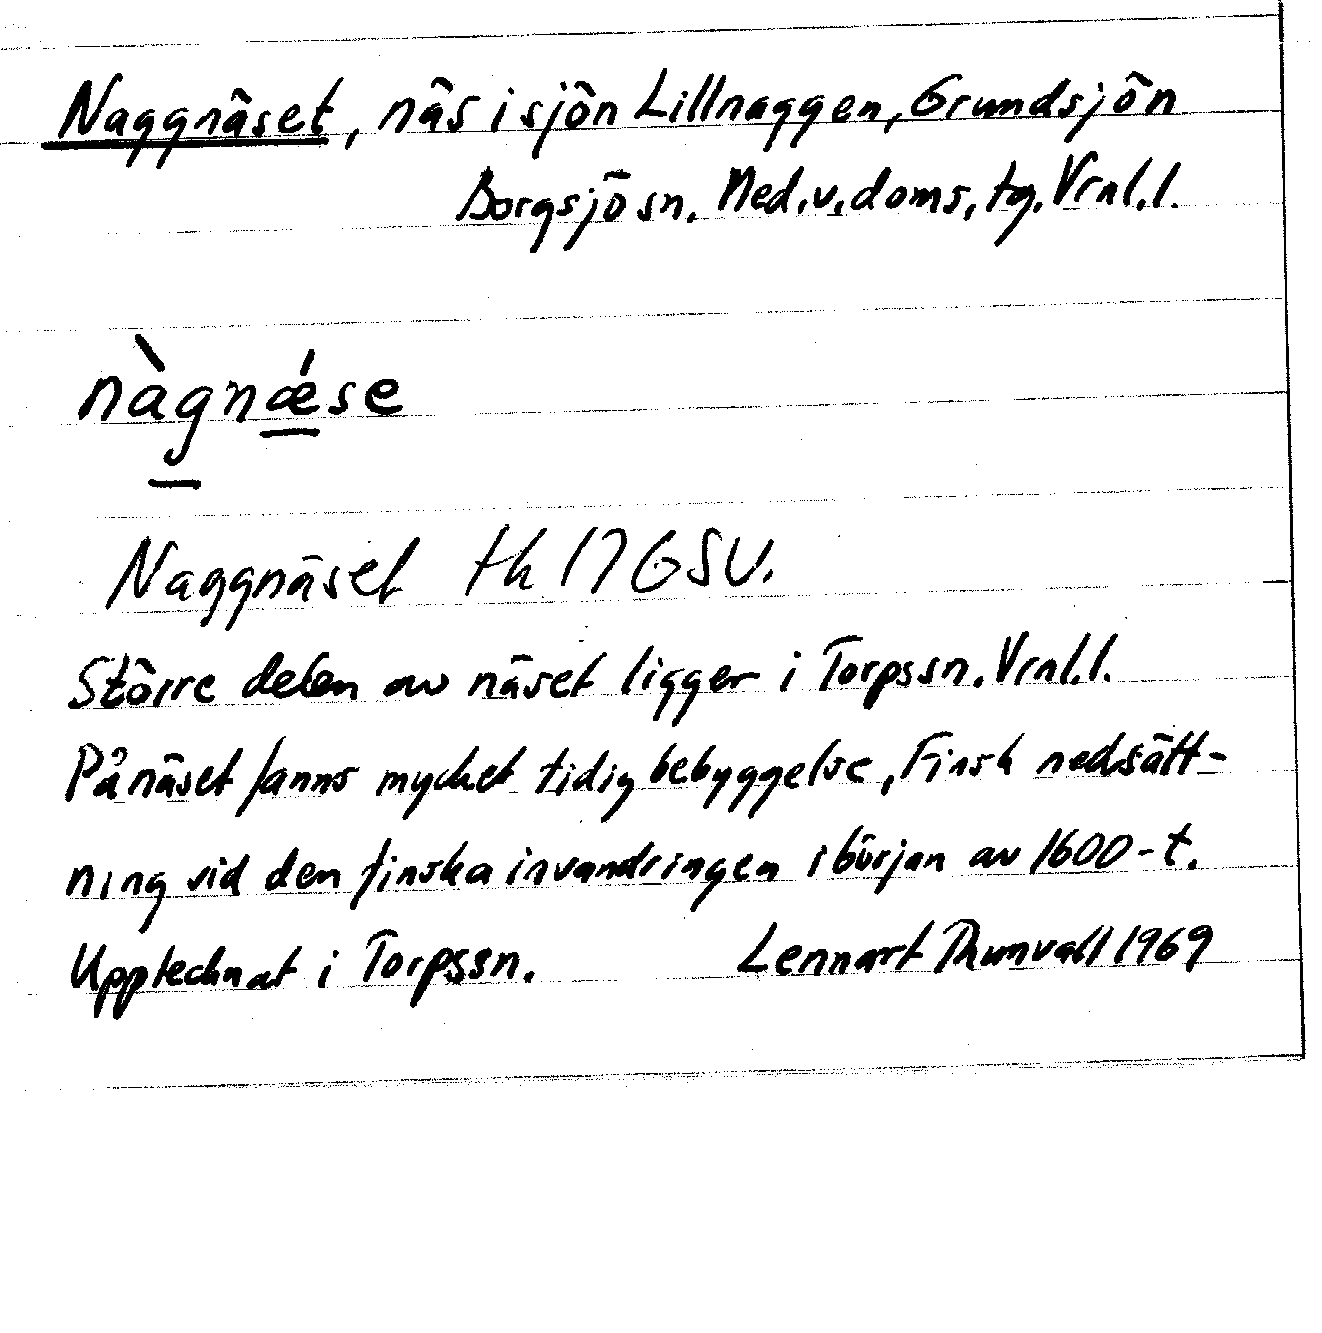 Naggnäset, näs i sjön Lillnaggen, Grundsjön
Borgsjö sn. Med.v.doms.tg. Vrnl.l.
nàgnǽse
Naggnäset tk 17 GSV.
Större delen av näset ligger i Torps sn. Vrnl.l.
På näset fanns mycket tidig bebyggelse, Finsk nedsätt-
ning vid den finska invandringen i början av 1600-t.
Upptecknat i Torps sn. Lennart Thunvall 1969